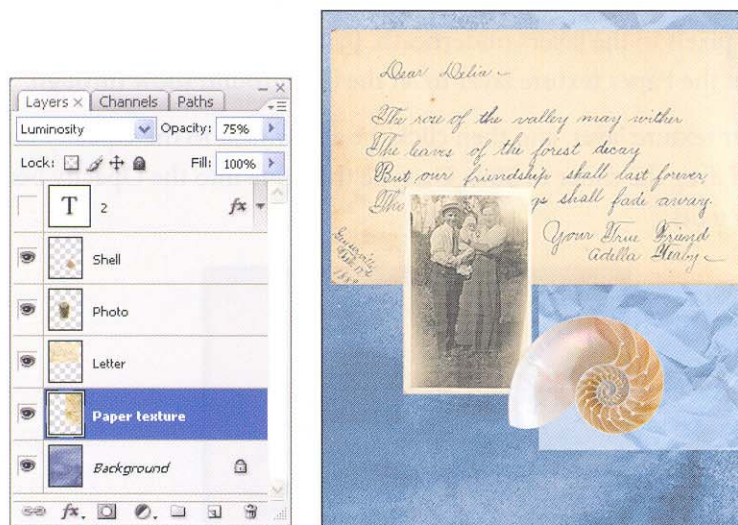 Layers × Channels Paths
Luminosity Opacity: 75%
Lock: Fill: 100%
T 2 fx
Shell
Photo
Letter
Paper texture
Background
fx.
Dear Delia
The rose of the valley may wither
The leaves of the forest decay
But our friendship shall last forever,
gs shall fade away.
Your True Friend
Adella
1889